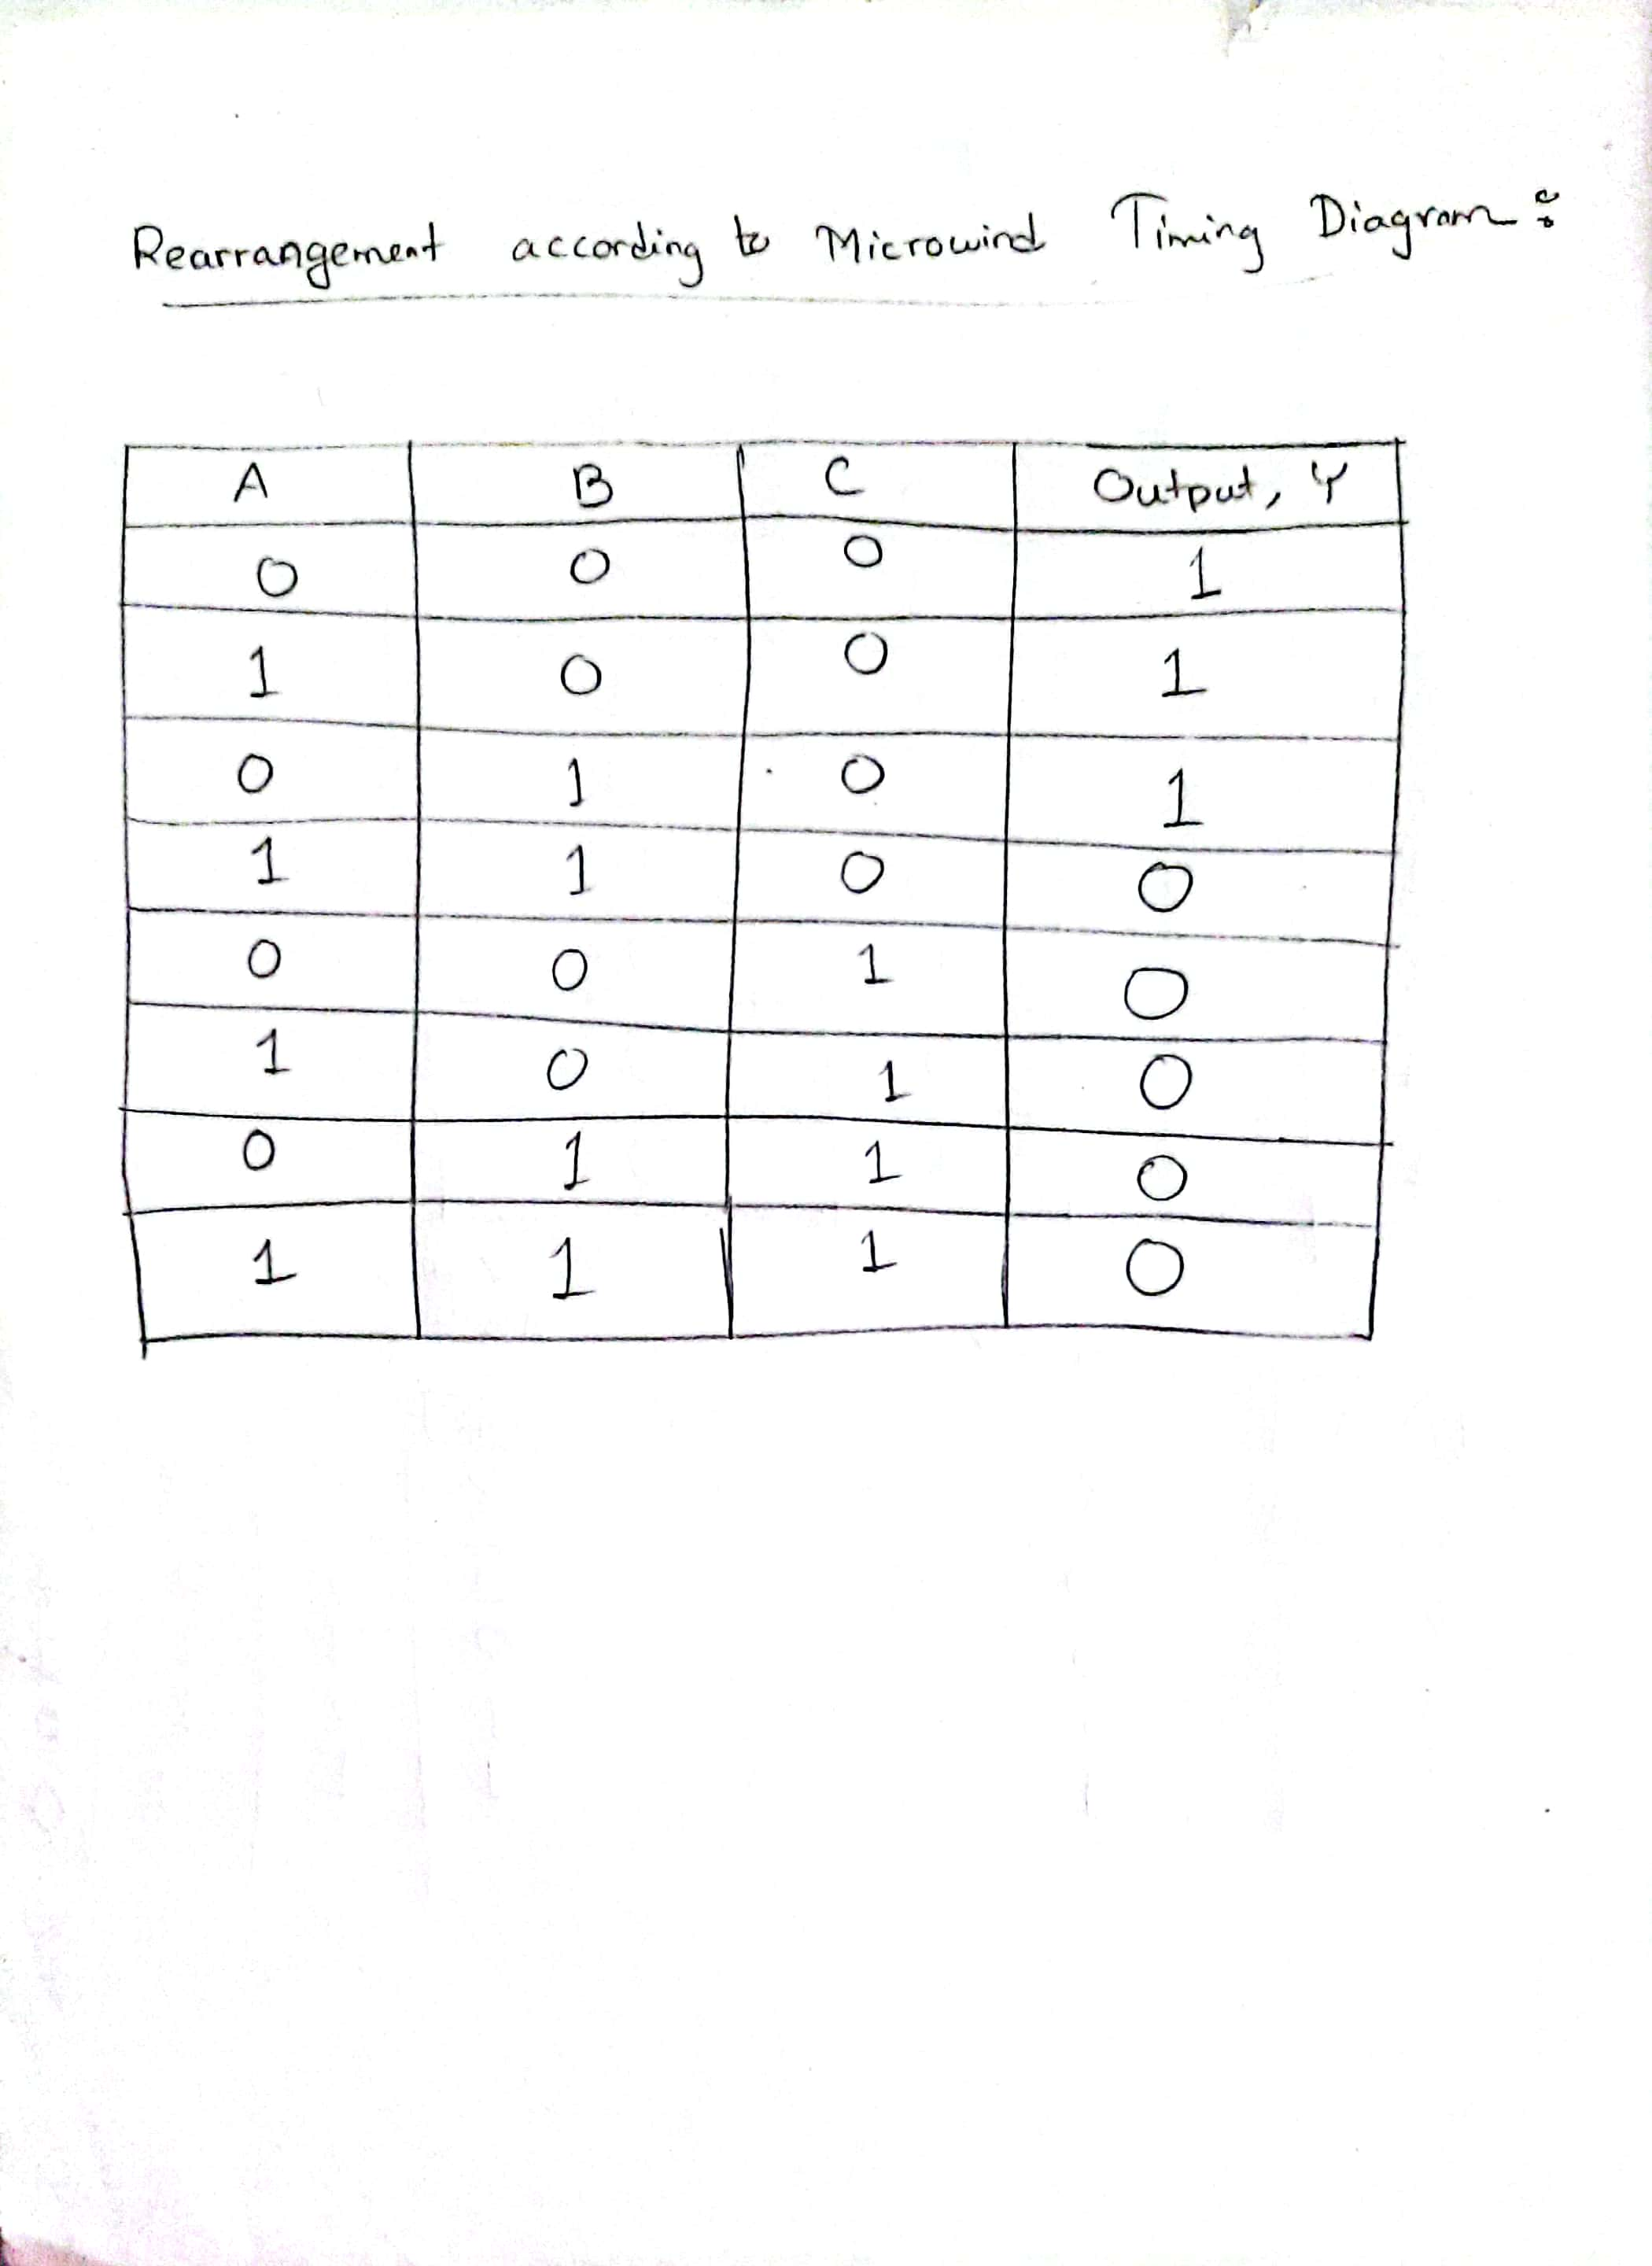 Rearrangement according to Microwind Timing Diagram:
A B C Output, Y
0 0 0 1
1 0 0 1
0 1 0 1
1 1 0 0
0 0 1 0
1 0 1 0
0 1 1 0
1 1 1 0